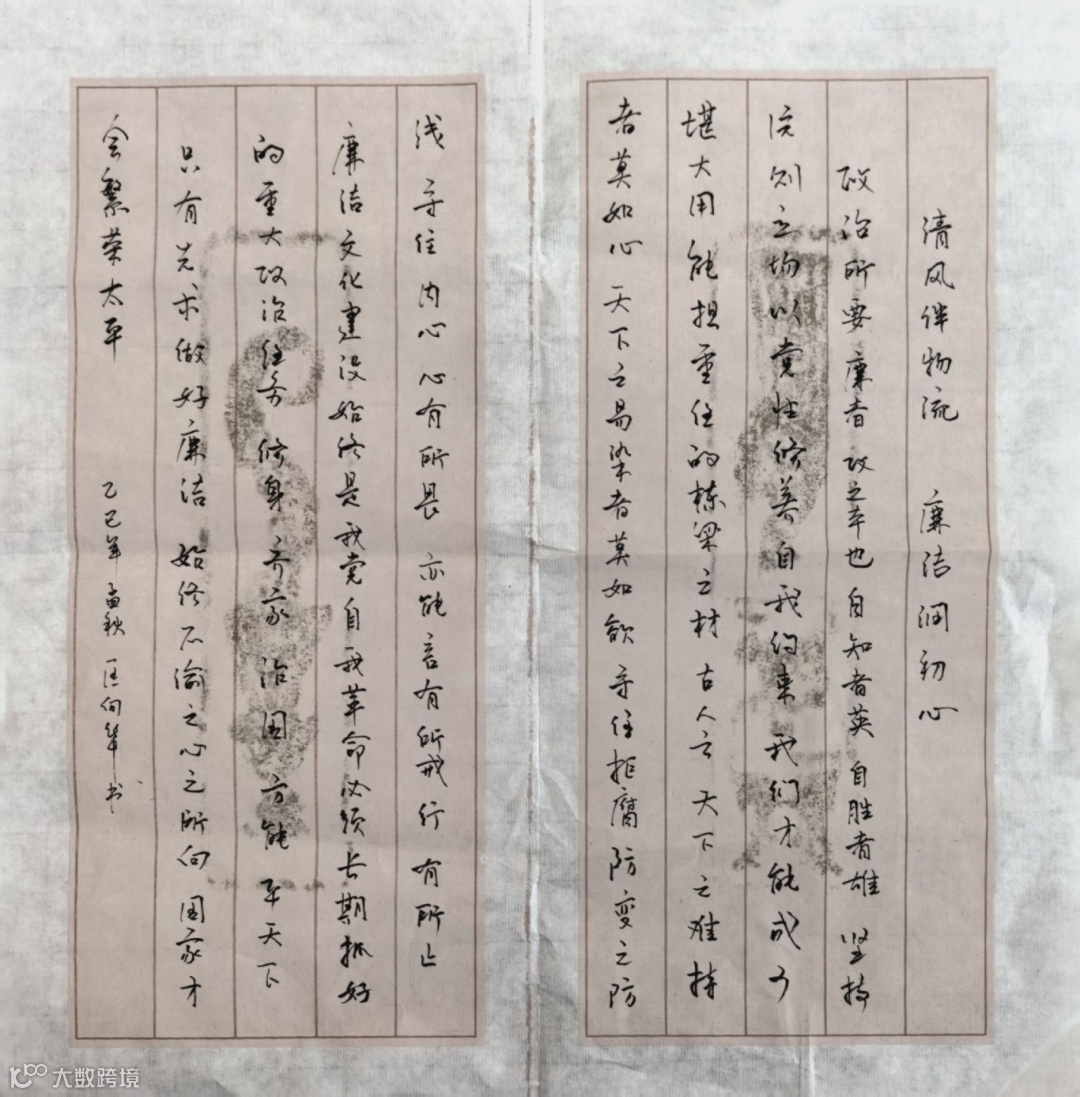 清风伴物流 廉洁润初心
政治所要 廉者 政之本也 自知者英 自胜者雄 坚持
原则立场 以党性修养自我约束 我们才能成了
堪大用能担重任的栋梁之材 古人云 天下之难持
者莫如心 天下之易染者莫如欲 守住拒腐防变之防
线 守住内心 心有所畏 亦能言有所戒 行有所止
廉洁文化建设始终是我党自我革命必须长期抓好
的重大政治任务 修身齐家治国方能平天下
只有先求做好廉洁 始终不渝之心之所向 国家才
会繁荣太平
乙巳年 孟秋 匡向华 书
大数跨境